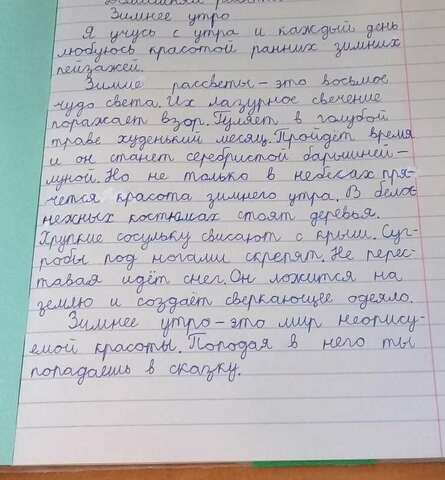 Зимнее утро
Я учусь с утра и каждый день
любуюсь красотой ранних зимних
пейзажей.
Зимние рассветы – это восьмое
чудо света. Их лазурное свечение
поражает взор. Гуляет в голубой
траве худенький месяц. Пройдёт время
и он станет серебристой барышней –
луной. Но не только в небесах пря-
чется красота зимнего утра. В бело
нежных костюмах стоят деревья.
Хрупкие сосульку свисают с крыш. Суг-
робы под ногами скрепят. Не перес-
тавая идёт снег. Он ложится на
землю и создаёт сверкающее одеяло.
Зимнее утро – это мир неопису-
емой красоты. Пападая в него ты
попадаешь в сказку.